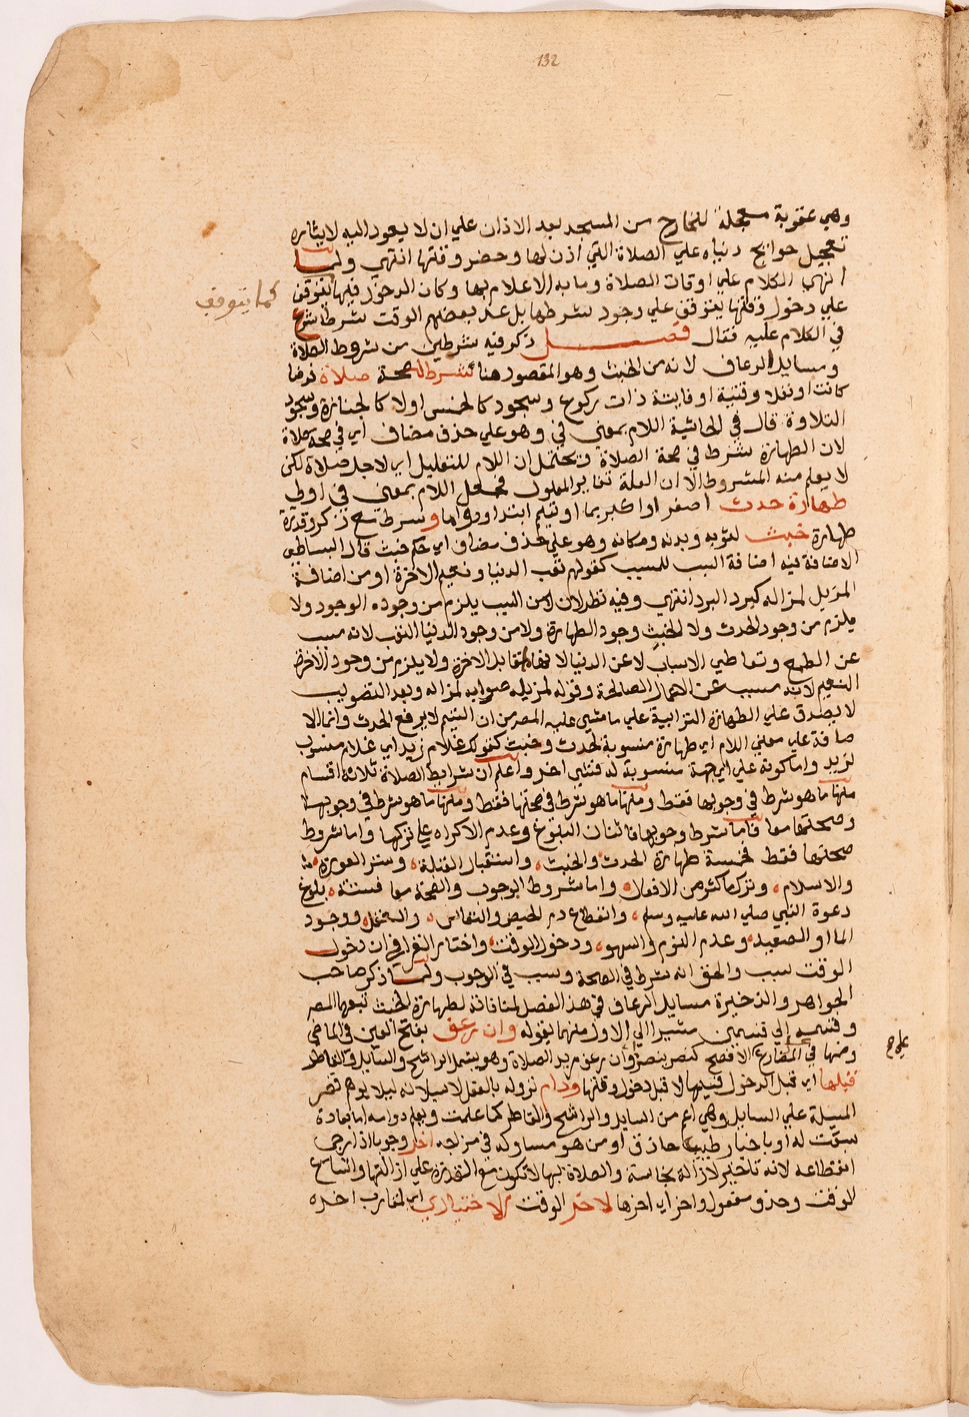 132
وهي عقوبة معجلة للخارج من المسجد بعد الاذان علي ان لا يعود اليه لايثاره
تعجيل حوايج دنياه علي الصلاة التي أذن لها وحضر وقتها انتهي ولما
انهي الكلام علي اوقات الصلاة وما به الاعلام بها وكان الدخول فيها يتوقف
كما يتوقف
علي دخول وقتها يتوقف علي وجود شرطها بل عد بعضهم الوقت شرطا شرع
في الكلام عليه فقال فصل ذكر فيه شرطين من شروط الصلاة
ومسايل الرعاف لانه من الخبث وهو المقصود هنا شرط لصحة صلاة فرضا
كانت او نفلا وقتية او فايتة ذات ركوع وسجود كالخمس اولا كالجنازة وسجود
التلاوة قال في الحاشية اللام بمعني في وهو علي حذف مضاف اي في صحة صلاة
لان الطهارة شرط في صحة الصلاة ويحتمل ان اللام للتعليل اي لاجل صلاة لكن
لا يعلم منه المشروط الا ان العلة تغاير المعلول فجعل اللام بمعني في اولي
طهارة حدث اصغر او اكبر بما او تيمم ابتدا ودواما وشرط مع ذكر وقدرة
طهارة خبث لثوبه وبدنه ومكانه وهو علي حذف مضاف اي حكم خبث قال البساطي
الاضافة فيه اضافة السبب للمسبب كقولهم تعب الدنيا ونعيم الاخرة او من اضافة
المزيل لمزاله كبرد البرد انتهي وفيه نظر لان السبب يلزم من وجوده الوجود ولا
يلزم من وجود الحدث ولا الخبث وجود الطهارة ولا من وجود الدنيا التعب لانه سبب
عن الطمع وتعاطي الاسباب لا عن الدنيا لانها مقابل الاخرة ولا يلزم من وجود الاخرة
النعيم لانه مسبب عن الاعمال الصالحة وقوله لمزيله صوابه لمزاله وبعد التصويب
لا يصدق علي الطهارة الترابية علي ما مشي عليه المص من ان التيمم لا يرفع الحدث وانما الا
ضافة علي معني اللام اي طهارة منسوبة لحدث وخبث كقولك غلام زيد اي غلام منسوب
لزيد واما كونه علي اي جهة منسوبة له فشي اخر واعلم ان شرايط الصلاة ثلاثة اقسام
منها ما هو شرط في وجوبها فقط ومنها ما هو شرط في صحتها فقط ومنها ما هو شرط في وجوبها
وصحتها معا فاما شرط وجوبها فاثنان البلوغ وعدم الاكراه علي تركها واما شروط
صحتها فقط فخمسة طهارة الحدث والخبث واستقبال القبلة وستر العورة
والاسلام وترك ما كثر من الافعال واما شروط الوجوب والصحة معا فستة بلوغ
دعوة النبي صلي الله عليه وسلم وانقطاع دم الحيض والنفاس والعقل ووجود
الما او الصعيد وعدم النوم والسهو ودخول الوقت واختار القرافي ان دخول
الوقت سبب والحق انه شرط في الصحة وسبب في الوجوب ولما ذكر صاحب
الجواهر والذخيرة مسايل الرعاف في هذا الفصل لمنافاته لطهارة الخبث تبعهما المص
وقسمه إلي قسمين مشيرا الي الاول منهما بقوله وان رعف بفتح العين في الماضي
وضمها في المضارع الافصح كنصر ينصر وأن رعف مريد الصلاة وهو يشمل الراشح والسايل والقاطر
قبلها اي قبل الدخول فيها لا قبل دخول وقتها ودام نزوله بالفعل لا سيلانه ليلا يوهم قصر
المسيلة علي السايل وهي اعم من السايل والراشح والقاطر كما علمت ويعلم دوامه اما بعادة
سبقت له او باخبار طبيب حاذق او من هو مساو له في مزاجه اخر وجوبا اذا رجي
انقطاعه لانه تاخير لازالة نجاسة والصلاة بها لا تكون مع القدرة علي ازالتها واتساع
الوقت وحذف مفعول واخر اي اخرها لاخر الوقت الاختياري اي لمقارب اخره